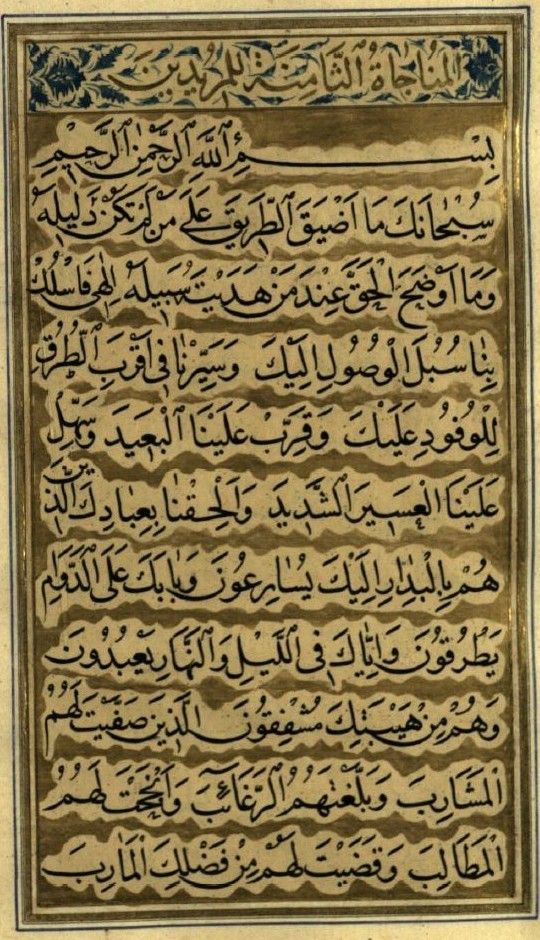 المُناجاةُ الثّامِنَةُ لِلمُريدينَ
بِسْمِ اللهِ الرَّحْمٰنِ الرَّحيمِ
سُبْحانَكَ ما اَضْيَقَ الطَّريقَ عَلى مَنْ لَمْ تَكُنْ دَليلَهُ
وَما اَوْضَحَ الْحَقَّ عِنْدَ مَنْ هَدَيْتَ سَبيلَهُ اِلٰهى فَاسْلُكْ
بِنا سُبُلَ الْوُصُولِ اِلَيْكَ وَسَيِّرْنا فى اَقْرَبِ الطُّرُقِ
لِلْوُفُودِ عَلَيْكَ وَقَرِّبْ عَلَيْنَا الْبَعيدَ وَسَهِّلْ
عَلَيْنَا الْعَسيرَ الشَّديدَ وَاَلْحِقْنا بِعِبادِكَ الَّذينَ
هُمْ بِالْبِدارِ اِلَيْكَ يُسارِعُونَ وَبابَكَ عَلَى الدَّوامِ
يَطْرُقُونَ وَاِيّاكَ فِى اللَّيْلِ وَالنَّهارِ يَعْبُدُونَ
وَهُمْ مِنْ هَيْبَتِكَ مُشْفِقُونَ الَّذينَ صَفَّيْتَ لَهُمُ
الْمَشارِبَ وَبَلَّغْتَهُمُ الرَّغائِبَ وَاَنْجَحْتَ لَهُمُ
الْمَطالِبَ وَقَضَيْتَ لَهُمْ مِنْ فَضْلِكَ الْمَارِبَ